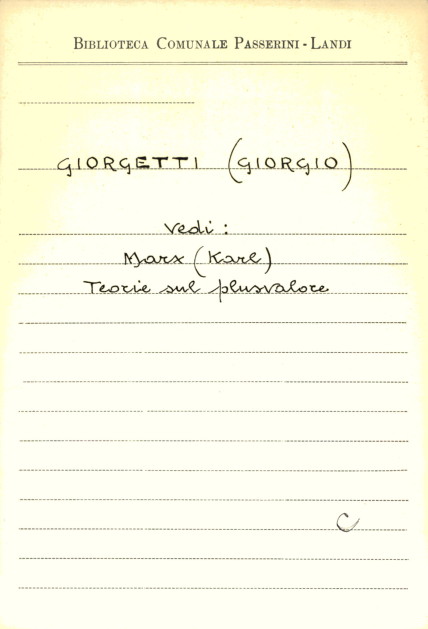 BIBLIOTECA COMUNALE PASSERINI - LANDI
GIORGETTI (GIORGIO)
Vedi :
Marx (Karl)
Teorie sul plusvalore
C